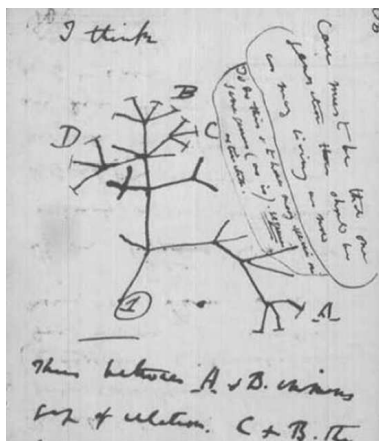 I think
B
C
D
A
1
Case must be that one
generation then should be
as many living as now
To do this & to have many species in
same genus (as is) requires
extinction
Thus between A & B. immens
gap of relation. C & B. th